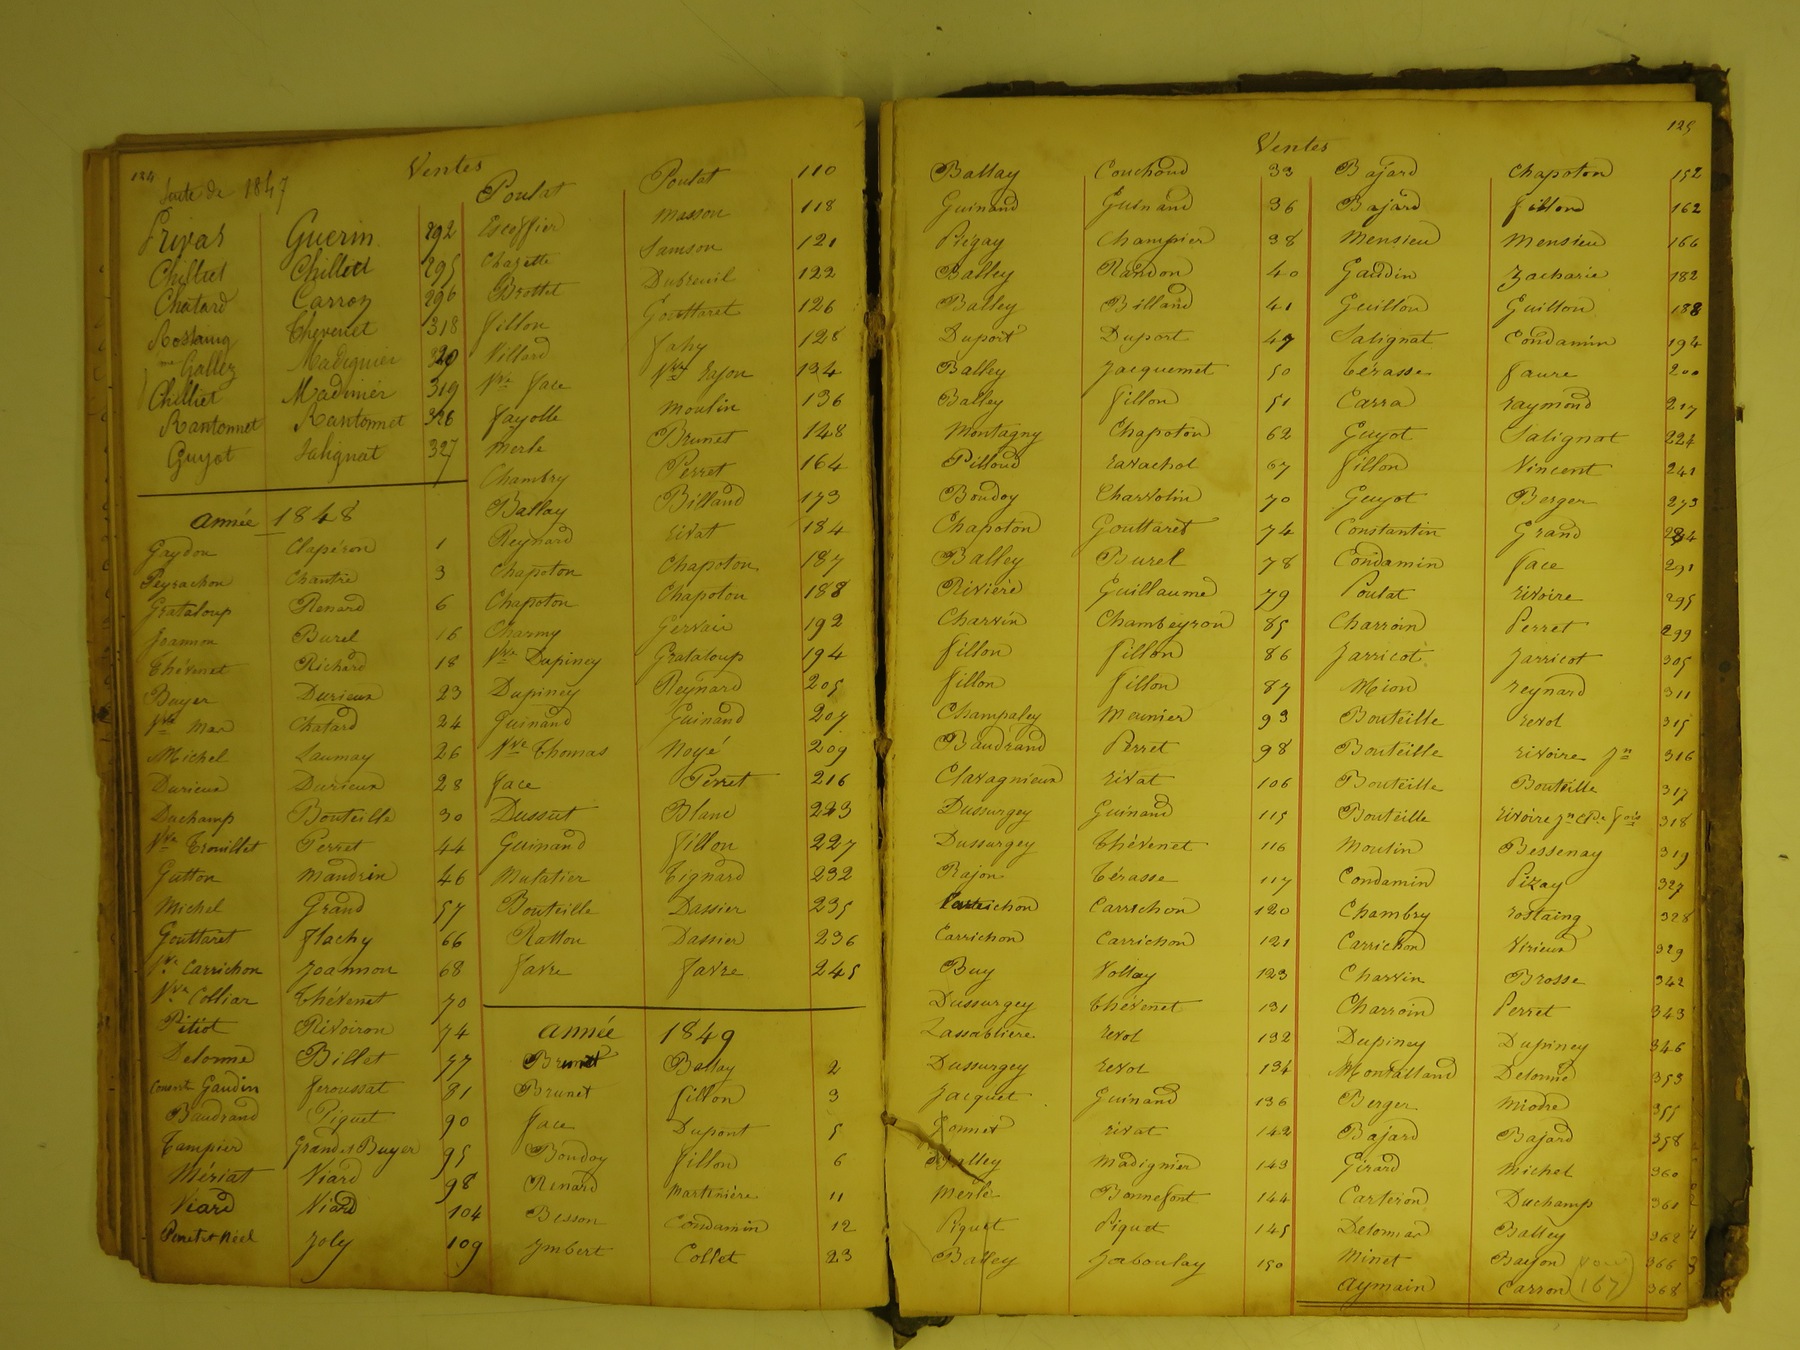 124
Ventes
Suite de 1847
Privas Guerin 292
Chilliet Chilliet 295
Chatard Carron 296
Rostaing Thevenet 318
Galley Madignier 320
Chilliet Madinier 319
Rantonnet Rantonnet 326
Guyot Salignat 327
année 1848
Gaydon Clapéron 1
Peyrachon Chantre 3
Grataloup Renard 6
Joannon Burel 16
Thévenet Richard 18
Buyer Durieux 23
Vve Mar Chatard 24
Michel Launay 26
Durieux Durieux 28
Duchamp Bouteille 30
Vve Trouillet Perret 44
Gutton Mandrin 46
Michel Grand 57
Gouttaret Flachy 66
Ve Carrichon Joannon 68
Vve Colliar Thévenet 70
Pitiot Rivoiron 74
Delorme Billet 77
Gaudin Feroussat 81
Baudrand Piquet 90
Tampier Grand et Buyer 95
Mériat Viard 98
Viard Viard 104
Joly 109
Poulat Poulat 110
Escoffier Masson 118
Chazette Samson 121
Brottet Dubreuil 122
Fillon Gouttaret 126
Villard Fahy 128
Vve Face Vve Rajon 134
Fayolle Moulin 136
Merle Brunet 148
Chambry Perret 164
Ballay Billand 173
Reynard Rivat 184
Chapoton Chapoton 187
Chapoton Chapoton 188
Charmy Gervais 192
Vve Dupiney Grataloup 194
Dupiney Reynard 205
Guinand Guinand 207
Vve Thomas Noyé 209
Face Perret 216
Dussert Blanc 223
Guinand Fillon 227
Mulatier Tignard 232
Bouteille Dassier 235
Rattou Dassier 236
Favre Favre 245
année 1849
Brunet Ballay 2
Brunet Fillon 3
Face Dupont 5
Boudoy Fillon 6
Renard Martinière 11
Besson Condamin 12
Imbert Collet 23
125
Ventes
Ballay Couchoud 33
Guinand Guinand 36
Pégay Champier 38
Balley Randon 40
Balley Billand 41
Duport Duport 47
Balley Jacquemet 50
Balley Fillon 51
Montagny Chapoton 62
Pilloud Ravachol 67
Boudoy Charvolin 70
Chapoton Gouttaret 74
Balley Burel 78
Rivière Guillaume 79
Charvin Chambeyron 85
Fillon Fillon 86
Fillon Fillon 87
Champaley Mounier 93
Baudrand Perret 98
Clavagnieux Rivat 106
Dussurgey Guinand 115
Dussurgey Thévenet 116
Rajon Térasse 117
Carrichon Carrichon 120
Carrichon Carrichon 121
Buy Vollay 123
Dussurgey Thévenet 131
Lassablière Revol 132
Dussurgey Revol 134
Jacquet Guinand 136
Gonnet Rivat 142
Balley Madignier 143
Merle Bonnefont 144
Piquet Piquet 145
Balley Jaboulay 150
Bajard Chapoton 152
Bajard Fillond 162
Mensieu Mensieu 166
Gaudin Zacharie 182
Guillon Guillon 188
Salignat Condamin 194
Térasse Faure 200
Carra Raymond 217
Guyot Salignat 224
Fillon Vincent 241
Guyot Berger 273
Constantin Grand 284
Condamin Face 291
Poulat Rivoire 295
Charroin Perret 299
Jarricot Jarricot 305
Mion Reynard 311
Bouteille Revol 315
Bouteille Rivoire Jn 316
Bouteille Bouteille 317
Bouteille Rivoire Jn 318
Moulin Bessenay 319
Condamin Pizay 327
Chambry Rostaing 328
Carrichon Virieux 329
Charvin Brosse 342
Charroin Perret 343
Dupiney Dupiney 346
Montalland Delorme 353
Berger Miodre 355
Bajard Bajard 358
Girard Michel 360
Carteron Duchamp 361
Delomar Balley 362
Minet Basson 366
Aymain Carron (167) 368